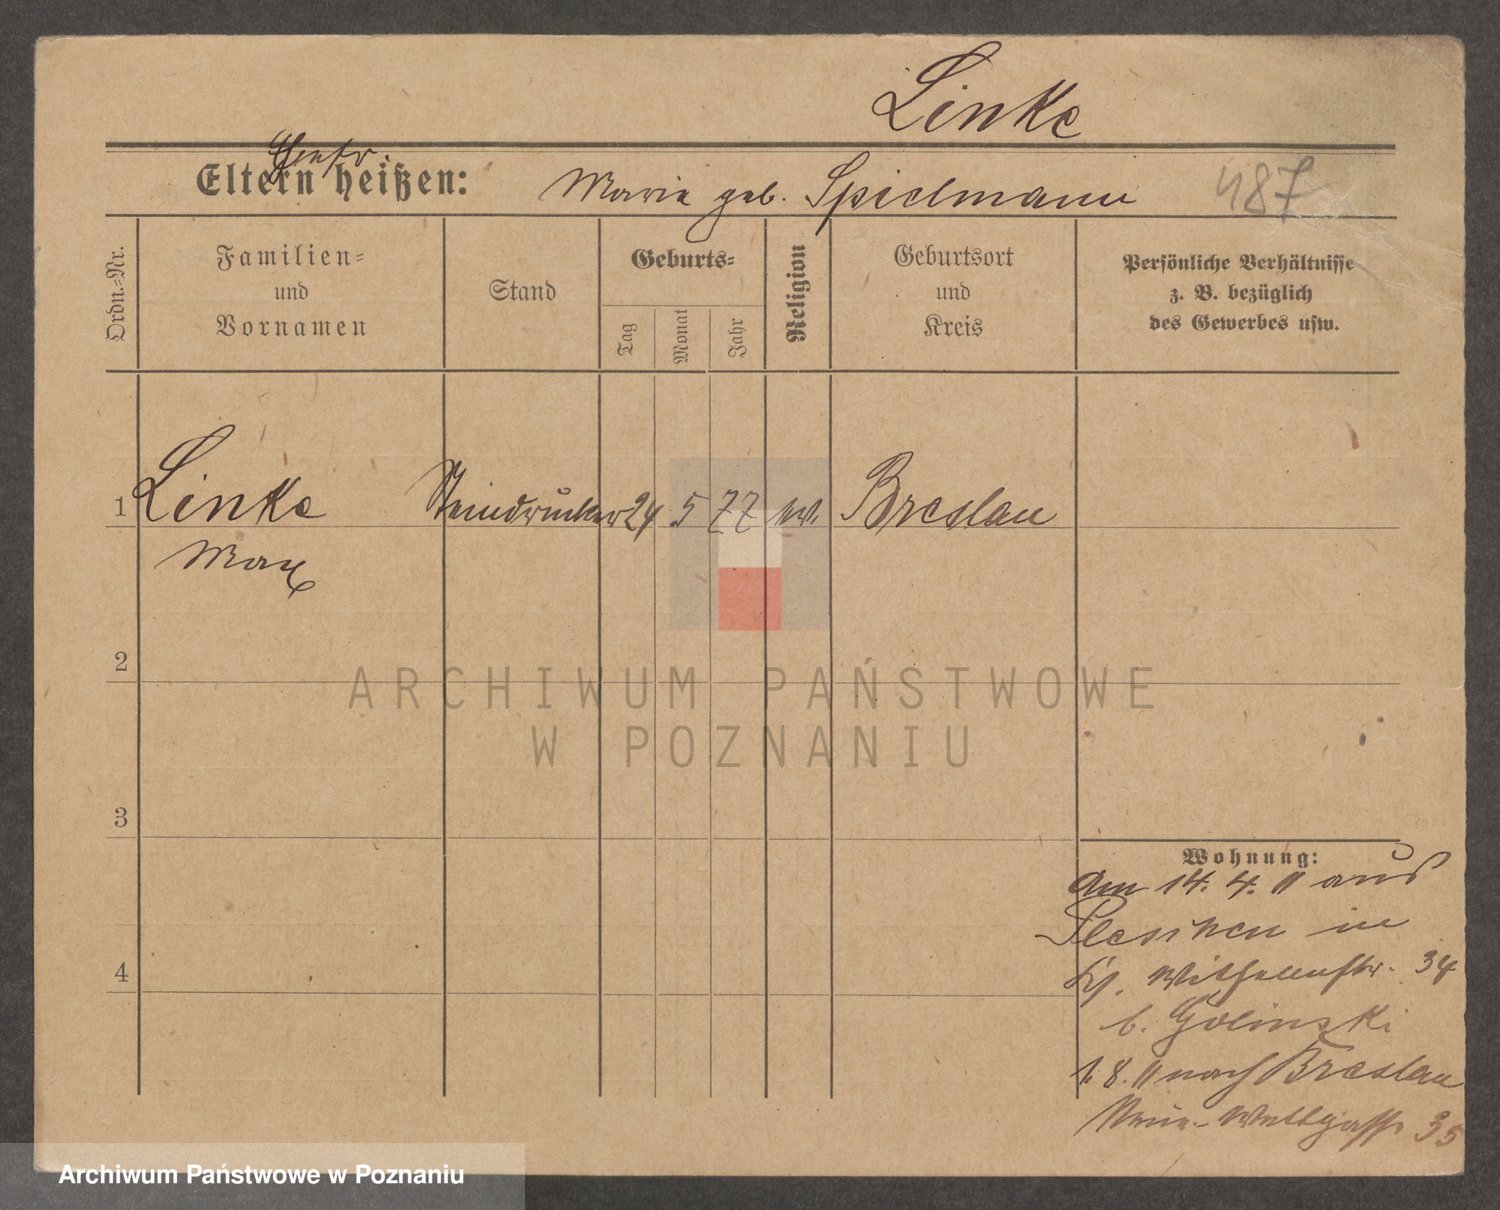 Linke
Eltern heißen: Maria geb. Spielmann
487
Ordn.-Nr.
Familien-
und
Vornamen
Stand
Geburts-
Tag
Monat
Jahr
Religion
Geburtsort
und
Kreis
Persönliche Verhältnisse
z. B. bezüglich
des Gewerbes usw.
1 Linke Steindrucker 24 5 77 Breslau
Max
2
ARCHIWUM PAŃSTWOWE
W POZNANIU
3
Wohnung:
am 14. 4. 11 aus
Pleschen in
Wilhelmstr. 34
b. Golinski
1. 8. 11 nach Breslau
Neue Weltgasse 35
4
Archiwum Państwowe w Poznaniu